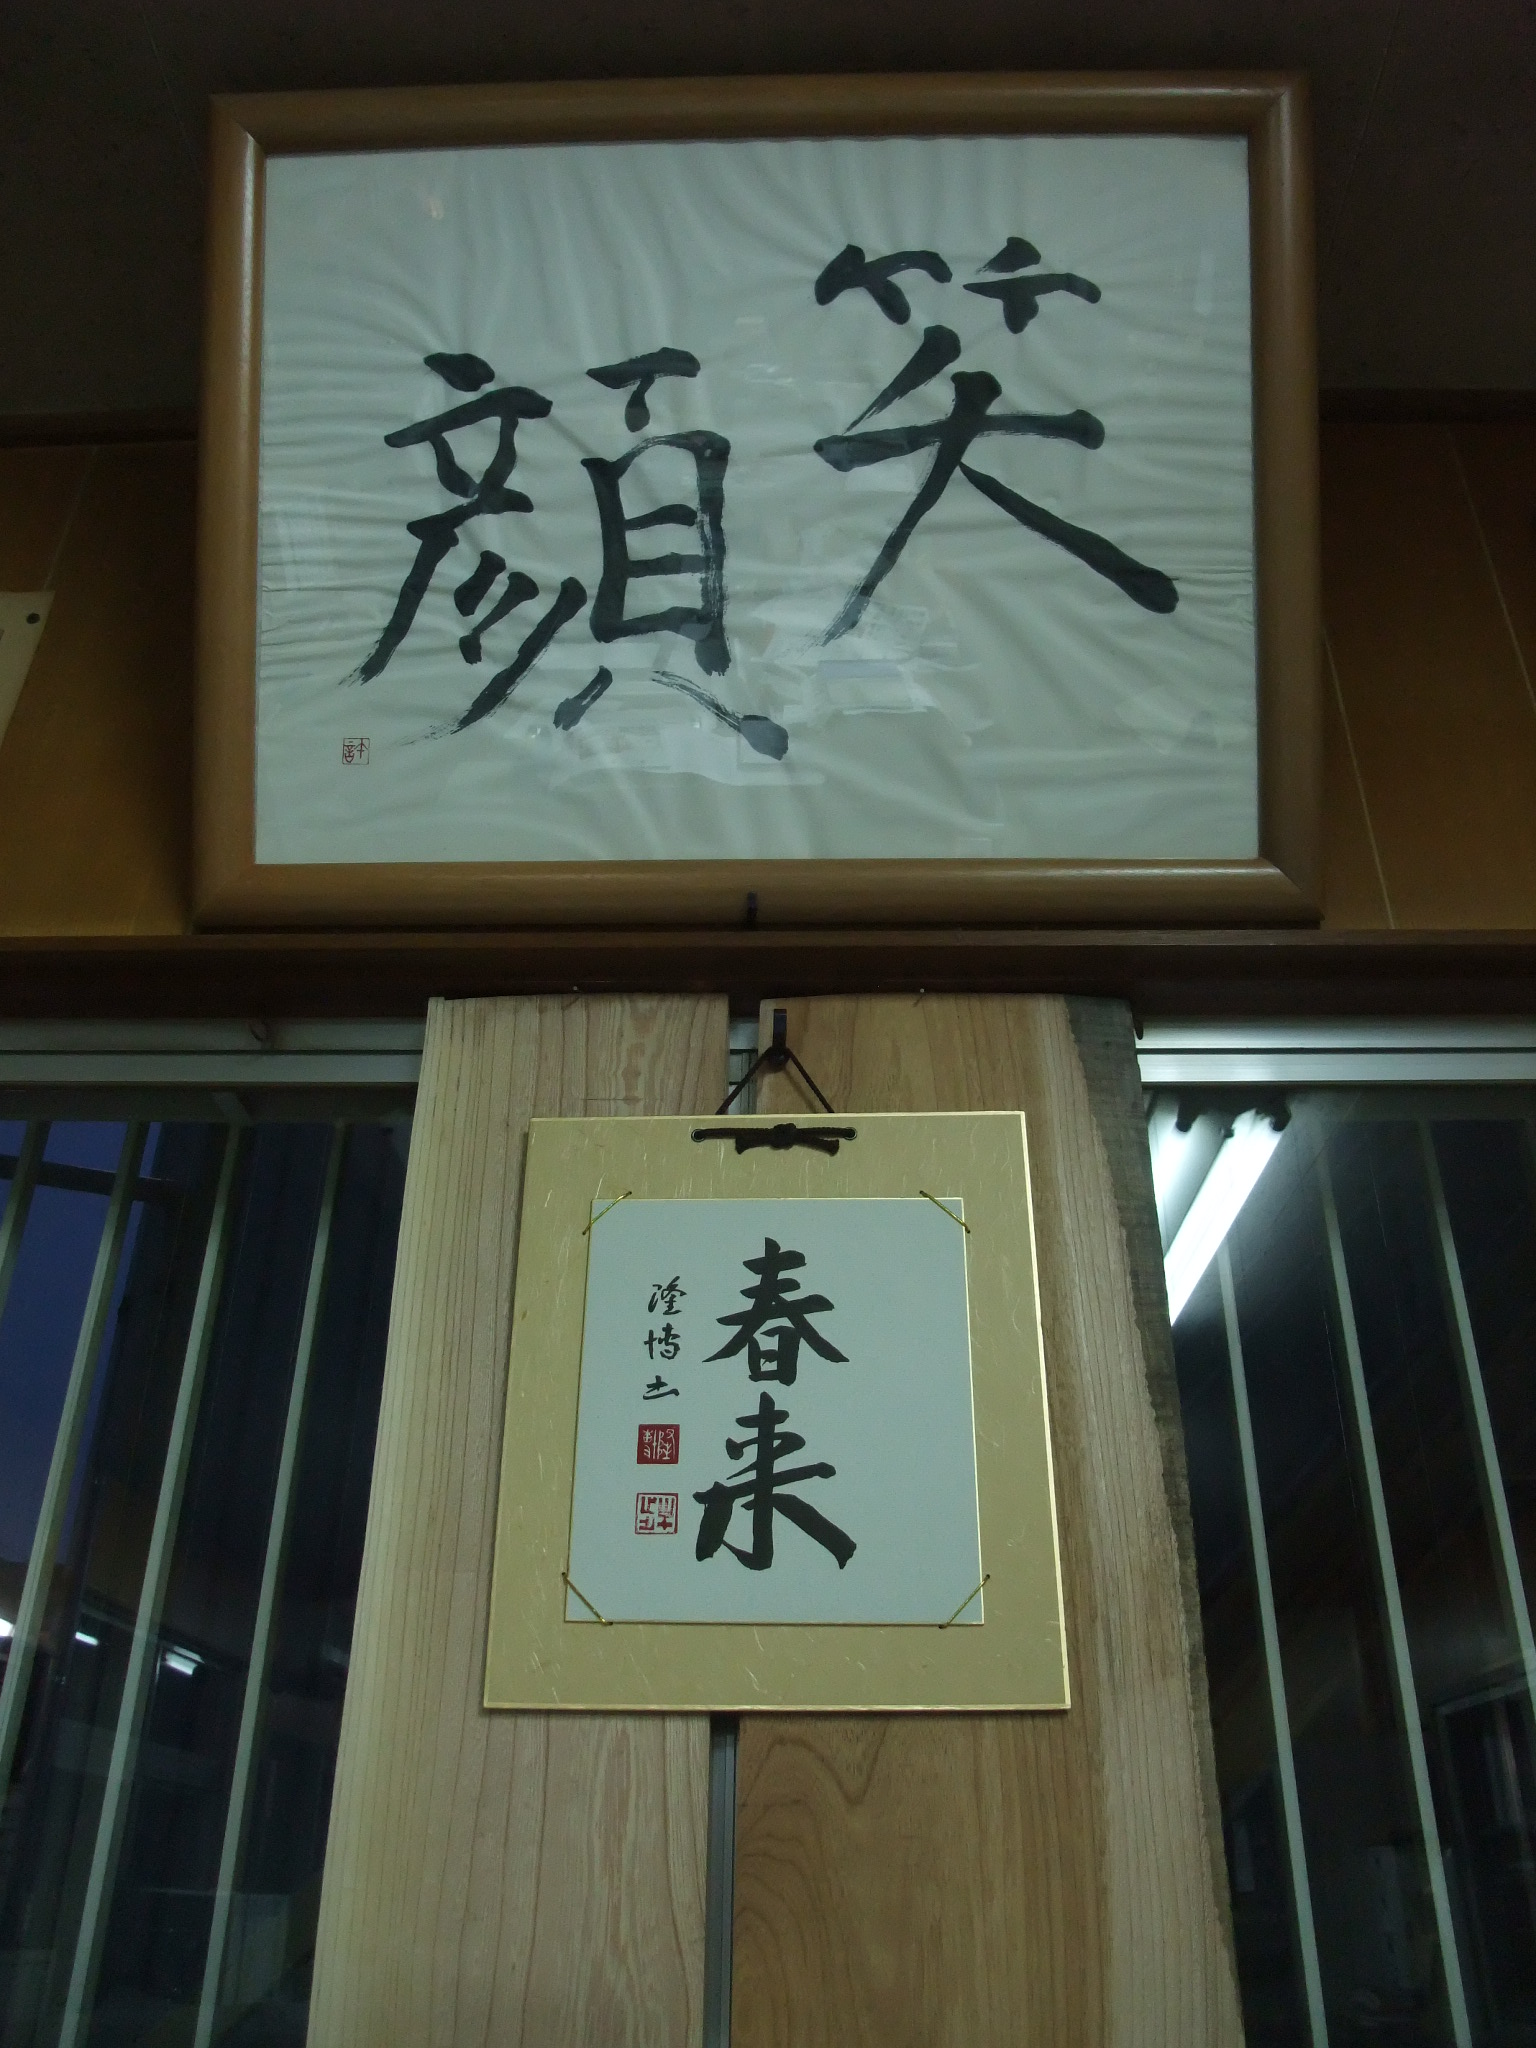 笑顔
春来
隆博書